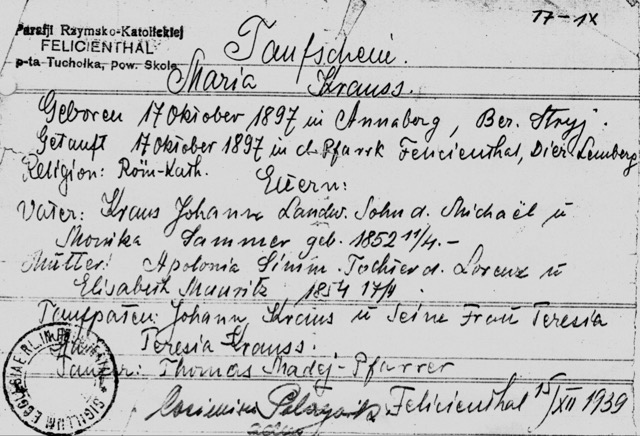 17-IX
Parafji Rzymsko-Katolickiej
FELICIENTHAL
p-ta Tuchołka, pow. Skole
Taufschein.
Maria Krauss.
Geboren 17 Oktober 1897 in Annaberg, Bez. Stryj.
Getauft 17 Oktober 1897 in d. Pfarrk Felicienthal, Diez Lemberg
Religion: Röm-Kath.
Eltern:
Vater: Kraus Johann Landw. Sohn d. Michaël u
Monika Sammer geb. 1852 11/4.-
Mutter: Apolonia Simm. Tochter d. Lorenz u
Elisabeth Mauritz 1854 17/
Taufpaten: Johann Kraus u Seine Frau Teresia
Teresia Krauss.
Thomas Madej - Pfarrer
Felicienthal 15/XII 1939
SIGILLUM ECCLESIAE